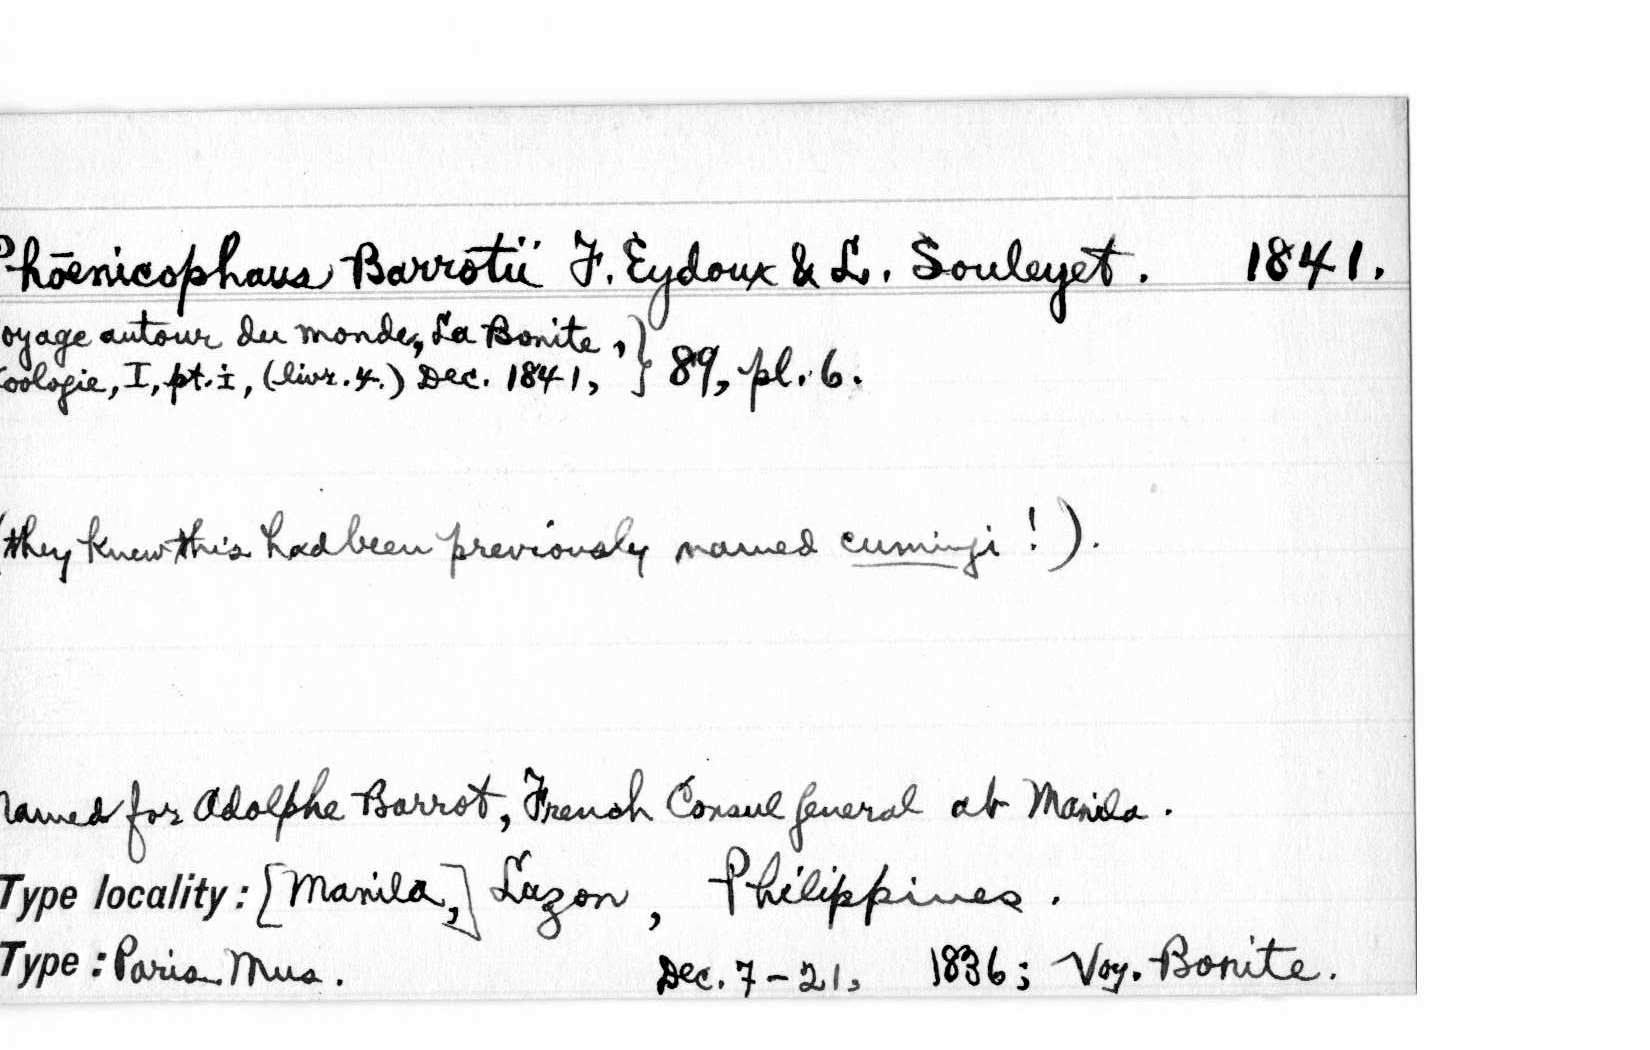 Phœnicophaus Barrotii F. Eydoux & L. Souleyet. 1841.
oyage autour du monde, La Bonite,} 89, pl. 6.
oologie, I, pt. i, (livr. 4.) Dec. 1841,
(they knew this had been previously named cumingi!).
named for Adolphe Barrot, French Consul General at Manila.
Type locality: [Manila,] Luzon, Philippines.
Type: Paris Mus. Dec. 7-21, 1836; Voy. Bonite.